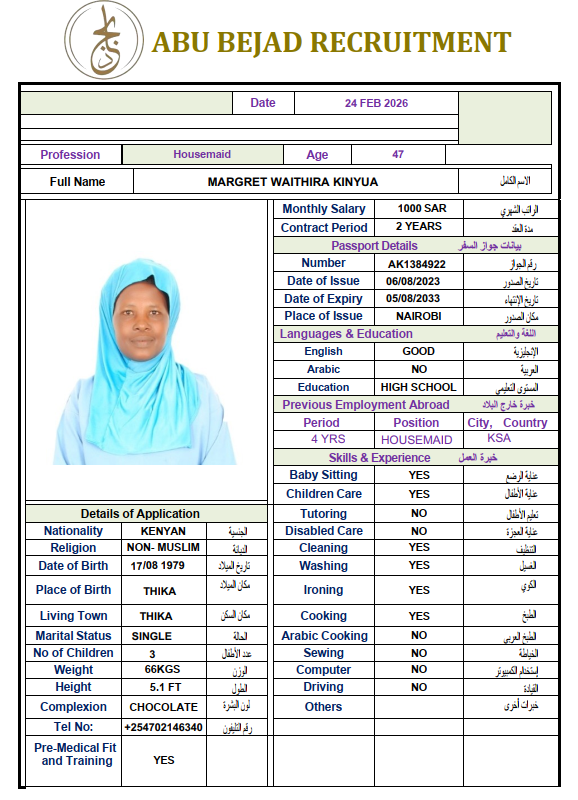 ABU BEJAD RECRUITMENT
Date 24 FEB 2026
Profession Housemaid Age 47
Full Name MARGRET WAITHIRA KINYUA الاسم الكامل
Monthly Salary 1000 SAR الراتب الشهري
Contract Period 2 YEARS مدة العقد
Passport Details بيانات جواز السفر
Number AK1384922 رقم الجواز
Date of Issue 06/08/2023 تاريخ الصدور
Date of Expiry 05/08/2033 تاريخ الإنتهاء
Place of Issue NAIROBI مكان الصدور
Languages & Education اللغة والتعليم
English GOOD الإنجليزية
Arabic NO العربية
Education HIGH SCHOOL المستوى التعليمي
Previous Employment Abroad خبرة خارج البلاد
Period Position City, Country
4 YRS HOUSEMAID KSA
Skills & Experience خبرة العمل
Baby Sitting YES عناية الرضع
Children Care YES عناية الأطفال
Details of Application
Tutoring NO تعليم الأطفال
Nationality KENYAN الجنسية
Disabled Care NO عناية العجزة
Religion NON- MUSLIM الديانة
Cleaning YES التنظيف
Date of Birth 17/08 1979 تاريخ الميلاد
Washing YES الغسيل
Place of Birth THIKA مكان الميلاد
Ironing YES الكوي
Living Town THIKA مكان السكن
Cooking YES الطبخ
Marital Status SINGLE الحالة
Arabic Cooking NO الطبخ العربي
No of Children 3 عدد الأطفال
Sewing NO الخياطة
Weight 66KGS الوزن
Computer NO إستخدام الكمبيوتر
Height 5.1 FT الطول
Driving NO القيادة
Complexion CHOCOLATE لون البشرة
Others خبرات أخرى
Tel No: +254702146340 رقم التليفون
Pre-Medical Fit
and Training YES